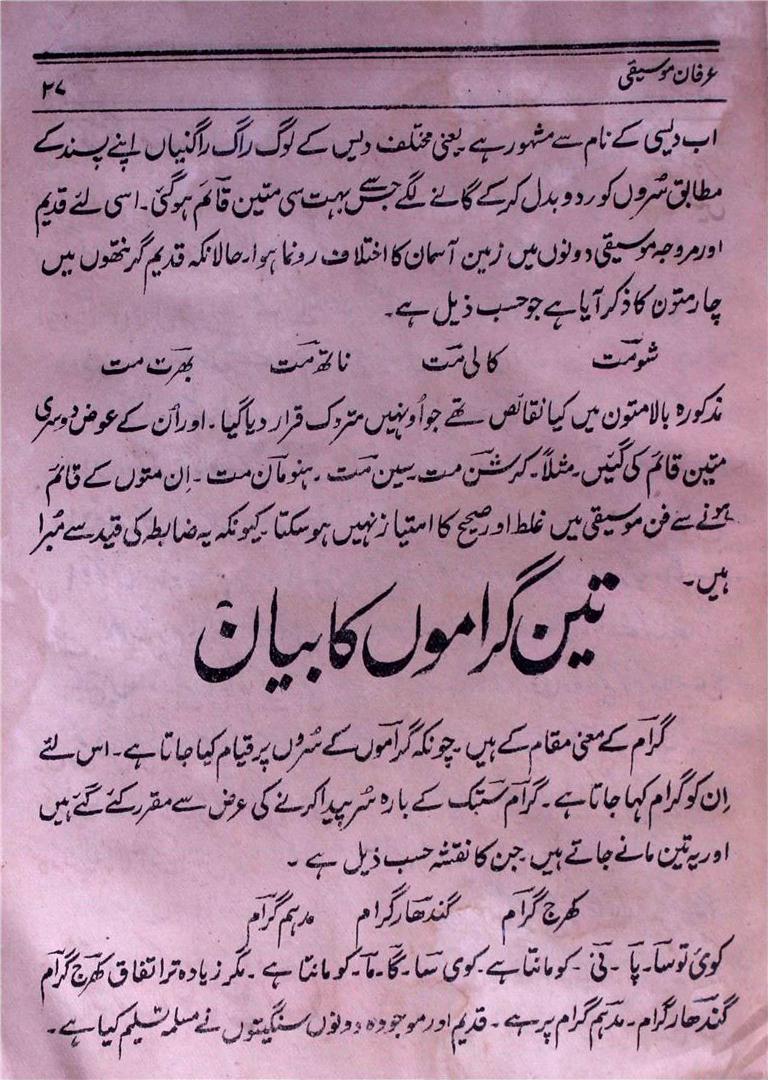 عرفان موسیقی
۲۷
اب دیسی کے نام سے مشہور ہے یعنی مختلف دیس کے لوگ راگ راگنیاں اپنے پسند کے
مطابق سُروں کو ردو بدل کر کے گانے لگے جس سے بہت سی متین قائم ہوگئی۔ اسی لئے قدیم
اور مروجہ موسیقی دونوں میں زمین آسمان کا اختلاف رونما ہوا۔ حالانکہ قدیم گرنتھوں میں
چار متون کا ذکر آیا ہے جو حسب ذیل ہے۔
شومت کالی مت ناتھ مت بھرت مت
مذکورہ بالا متون میں کیا نقائص تھے جو اُونہیں متروک قرار دیا گیا۔ اور اُن کے عوض دوسری
متین قائم کی گئیں۔ مثلاً۔ کرشن مت۔ سین مت۔ ہنومان مت۔ اِن متوں کے قائم
ہونے سے فن موسیقی میں غلط اور صحیح کا امتیاز نہیں ہوسکتا۔ کیونکہ یہ ضابطہ کی قید سے مُبرا
ہیں۔
تین گراموں کا بیان
گرام کے معنی مقام کے ہیں۔ چونکہ گراموں کے سُروں پر قیام کیا جاتا ہے۔ اس لئے
اِن کو گرام کہا جاتا ہے۔ گرام سپتک کے بارہ سُر پیدا کرنے کی غرض سے مقرر کئے گئے ہیں
اور یہ تین مانے جاتے ہیں جن کا نقشہ حسب ذیل ہے۔
کھرج گرام گندھار گرام مدہم گرام
کوئی تو سا۔ پا۔ نی۔ کو مانتا ہے۔ کوی سا۔ گا۔ ما۔ کو مانتا ہے۔ مگر زیادہ تر اتفاق کھرج گرام
گندھار گرام۔ مدہم گرام پر ہے۔ قدیم اور موجودہ دونوں سنگیتوں نے مسلمہ تسلیم کیا ہے۔